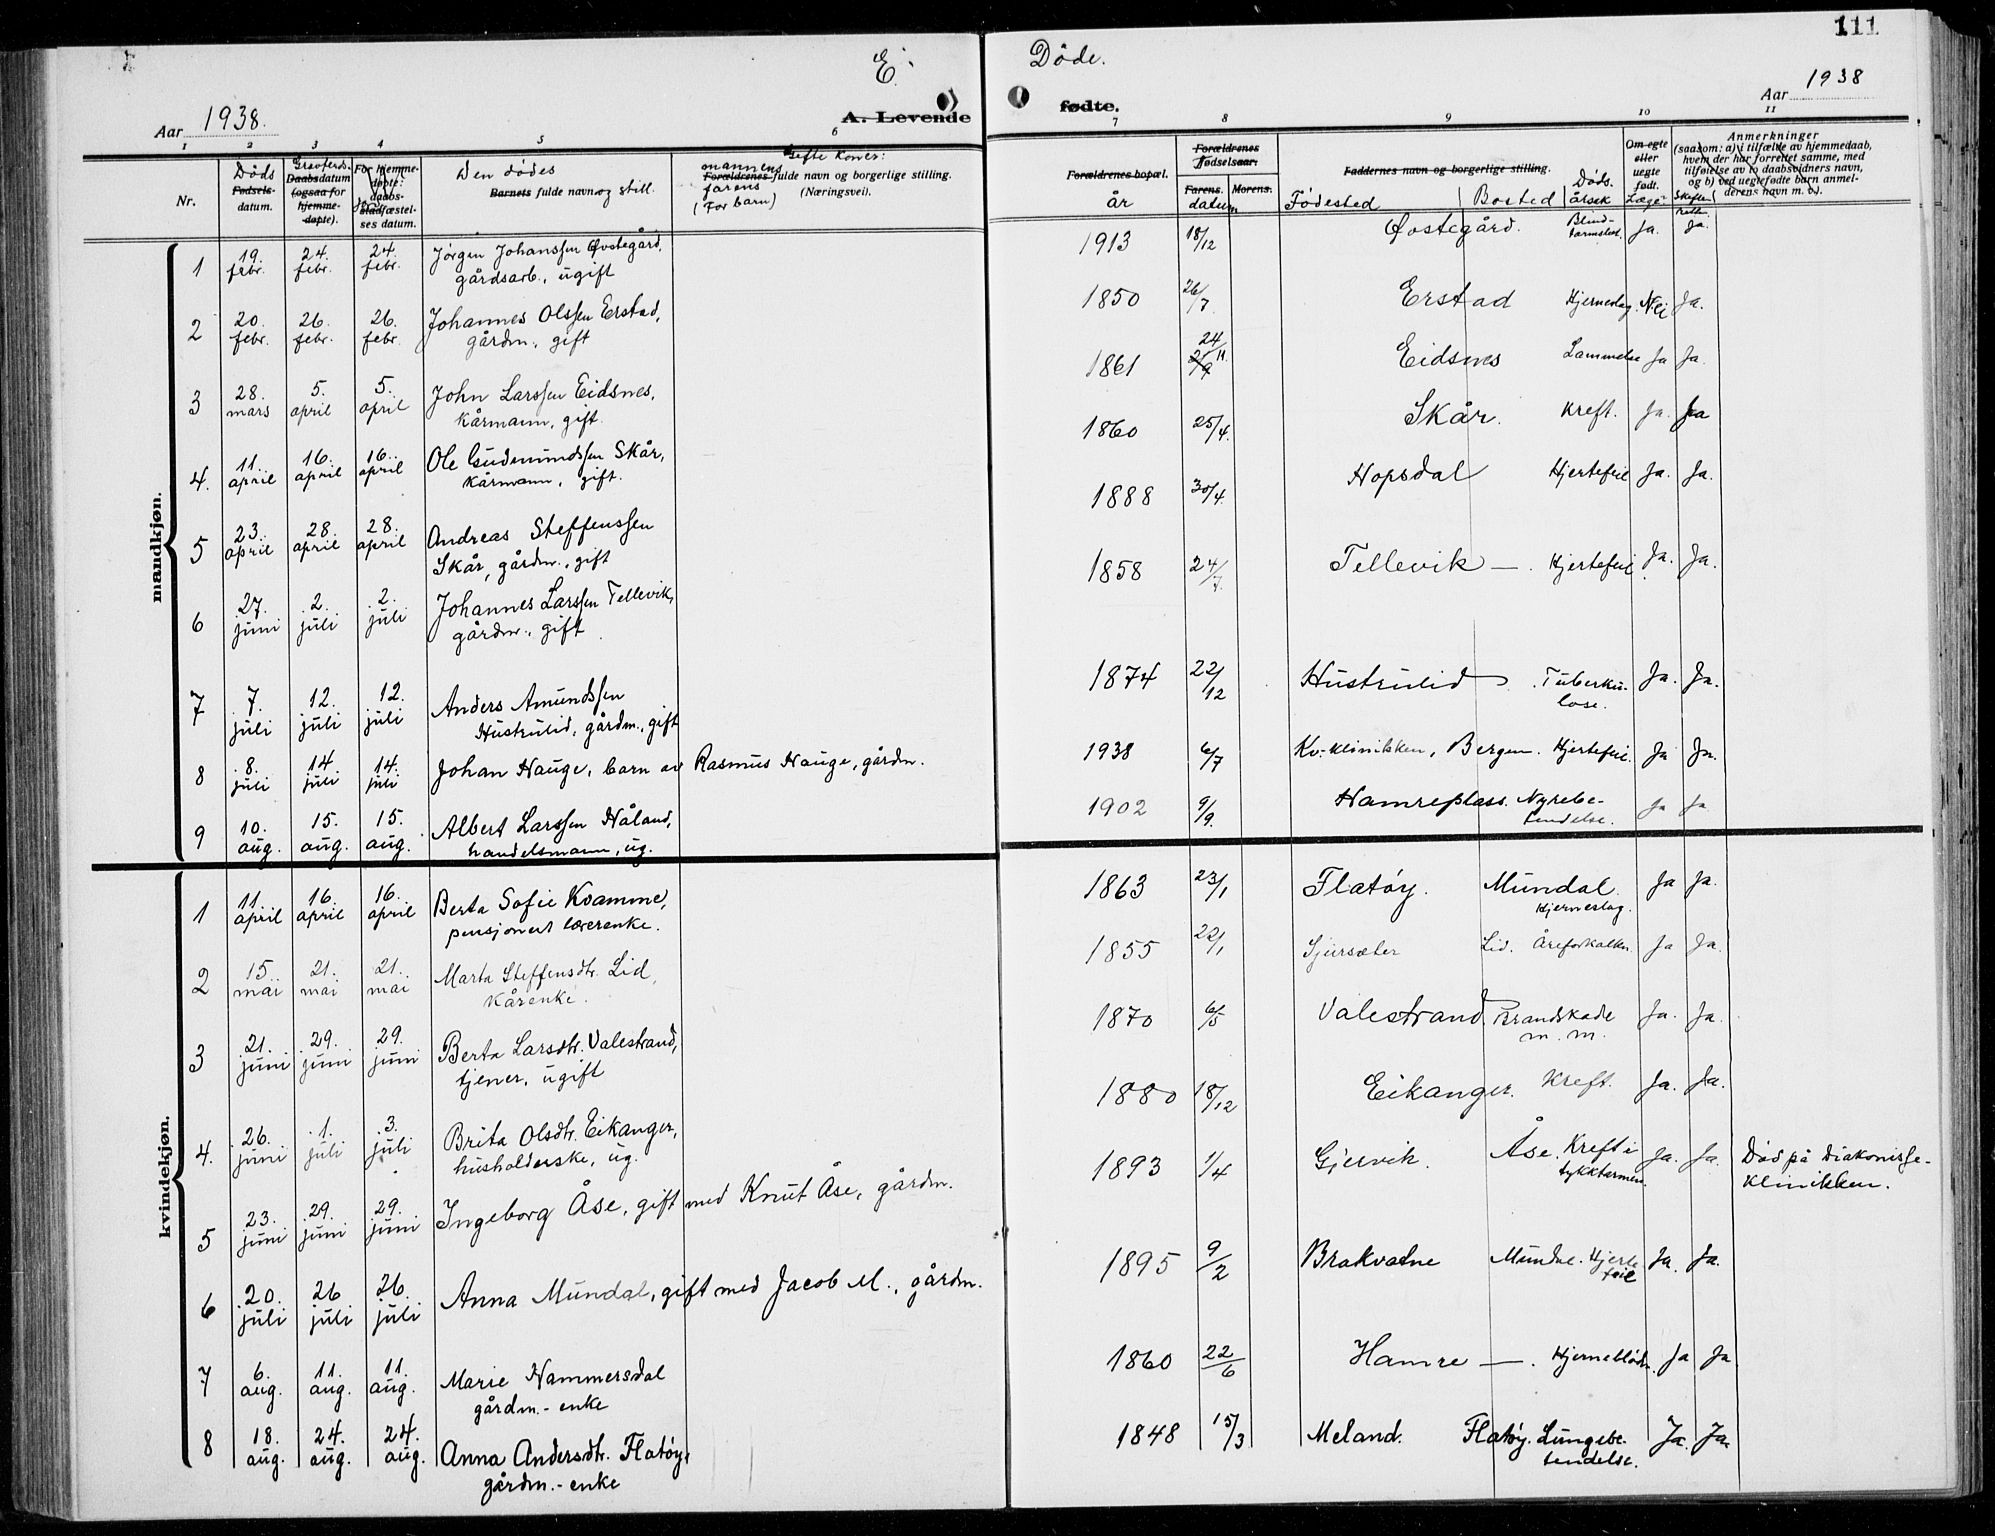 E. Døde.
111
Aar 1938.
A. Levende fødte.
Aar 1938
1 2 3 4 5 6 7 8 9 10 11
Nr.
Døds
Fødsels-
datum.
Daabsdatum
(ogsaa for
hjemme-
døpte).
For hjemme-
døpte:
daabs-
stadfæstel-
ses datum.
Den dødes
Barnets fulde navn og still.
Gifte koner:
mannens
Forældrenes fulde navn og borgerlige stilling.
farens
(For barn)
(Næringsveil.
Forældrenes bopæl.
år
Forældrenes
Fødselsaar:
Farens. Morens.
datum
Faddernes navn og borgerlige stilling.
Fødested Bosted Døds-
årsak
Om egte
eller
uegte
født.
Læge-
Skifte-
rett
Anmerkninger
(saasom: a) i tilfælde av hjemmedaab,
hvem der har forrettet samme, med
tilføielse av to daabsvidners navn,
og b) ved uegtefødte barn anmel-
derens navn m. v.).
mandkjøn.
1 19. febr. 24. febr. 24. febr. Jørgen Johanssen Øvstegård, 1913 18/12 Øvstegård. Blind-
gårdsarb., ugift tarmsbet. Ja. Ja.
2 20. febr. 26. febr. 26. febr. Johannes Olssen Erstad, 1850 26/7 Erstad Hjerneslag. Nei Ja.
gårdm., gift
3 28. mars 5. april 5. april John Larssen Eidsnes, 1861 24/11 Eidsnes Lammelse Ja Ja.
kårmann, gift.
4. 11. april 16. april 16. april Ole Gudmundssen Skår, 1860 25/4. Skår. Kreft. Ja. Ja
kårmann, gift.
5 23. april 28. april 28. april Andreas Steffenssen 1888 30/4. Hopsdal Hjertefeil Ja. Ja.
Skår, gårdm., gift
6 27. juni 2. juli 2. juli Johannes Larssen Tellevik, 1858 24/7. Tellevik —. Hjertefeil Ja. Ja.
gårdm., gift.
7 7. juli 12. juli 12. juli Anders Amundssen 1874 22/12 Hustrulid Tuberku-
Hustrulid, gårdm., gift lose. Ja. Ja.
8 8. juli 14 juli 14. juli Johan Hauge, barn av Rasmus Hauge, gårdm. 1938 6/7 Kv.-klinikken, Bergen. Hjertefeil. Ja Ja.
9 10. aug. 15. aug. 15. aug. Albert Larssen Håland, 1902 9/9. Hamreplass. Nyrebe-
handelsmann, ug. tendelse. Ja Ja
kvindekjøn.
1 11. april 16. april 16. april Berta Sofie Kvamme, 1863 23/1 Flatøy. Mundal. Ja Ja.
pensjonert lærerenke. Hjerneslag.
2 15 mai 21. mai 21. mai Marta Steffensdtr. Lid, 1855 22/1 Gjersæter Lid. Åreforkalkn. Ja Ja.
kårenke.
3 21. juni 29. juni 29. juni Berta Larsdtr. Valestrand, 1870 6/5 Valestrand Brandskade Ja. Ja.
tjener, ugift m. m.
4. 26. juni 1. juli 3. juli Brita Olsdtr. Eikanger, 1880 18/12 Eikanger. Kreft. Ja. Ja.
husholderske, ug.
5 23. juni 29. juni 29. juni Ingeborg Åse, gift med Knut Åse, gårdm. 1893 1/4 Gjervik. Åse. Kreft i Ja. Ja. Død på Diakonisse-
tykktarmen. klinikken.
6 20. juli 26 juli 26. juli Anna Mundal, gift med Jacob M., gårdm. 1895 9/2 Brakvatne Mundal. Hjerte-
feil Ja. Ja.
7 6. aug. 11. aug. 11. aug. Marie Hammersdal 1860 22/6 Hamre —. Hjerneblødn. Ja Ja
gårdm.- enke
8 18. aug. 24. aug. 24. aug. Anna Andersdtr. Flatøy, 1848 15/3 Meland. Flatøy. Lungebe-
gårdm.- enke tendelse. Ja. Ja.